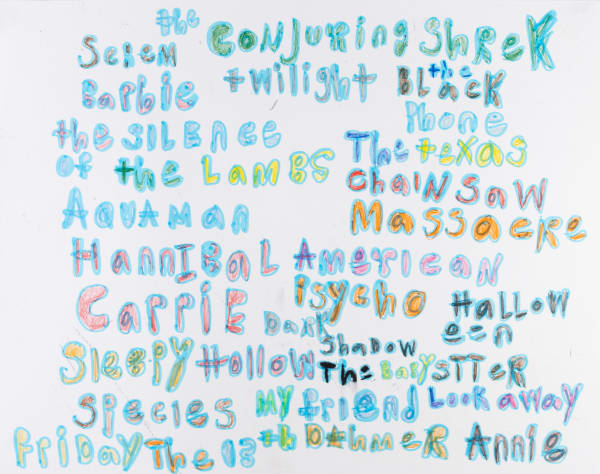 the
Screm
ConJurring
Shrek
Barbie
twilight
the
BLacK
Phone
the SILENCE
of the LAMBS
The texas
ChaiNSaW
Massacre
AQUAMAN
HannIBaL
AmericaN
Psycho
CaRRiE
HaLLoW
een
Dark
Shadow
SleePy Hollow
The BaBy SITTER
Species
My friend
DaHmeR
Look away
FRiDaY The 13
th
Annie